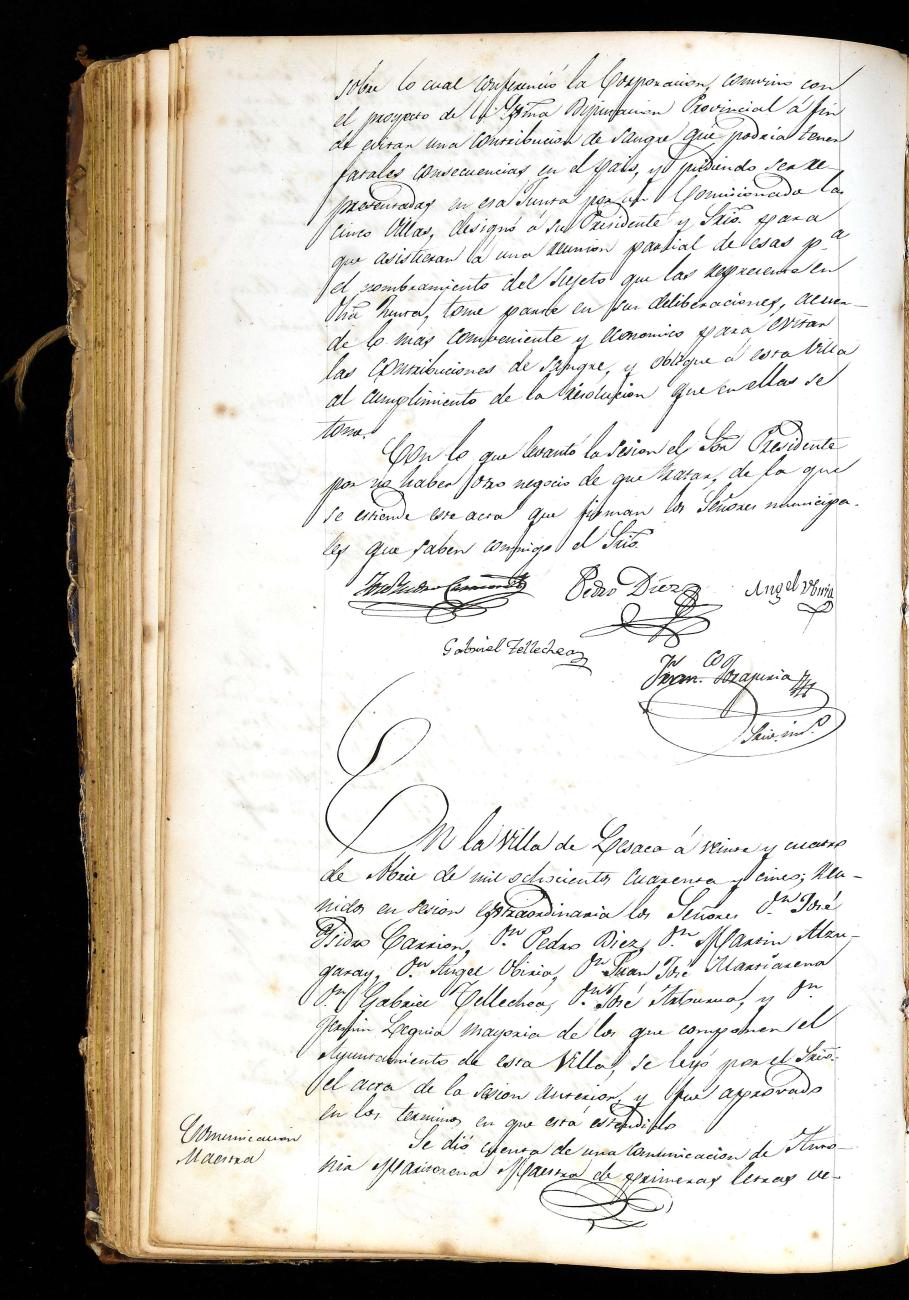 sobre lo cual conferenció la Corporacion, convino con
el proyecto de la Ylma Diputacion Provincial á fin
de evitar una contribucion de sangre que podria tener
fatales consecuencias en el pais, y pudiendo ser re-
presentadas en esa Junta por un Comisionado las
cinco Villas, designó á su Presidente y Srio. para
que asistieran á una reunion parcial de esas p.a
el nombramiento del Sujeto que las represente en
dha Junta, tome parte en sus deliberaciones, acuer-
de lo mas conveniente y economico para evitar
las contribuciones de sangre, y obligue á esta Villa
al cumplimiento de la resolucion que en ellas se
tome.
Con lo que levantó la sesion el Sōr Presidente
por no haber otro negocio de que tratar, de la que
se estiende este acta que firman los Señores municipa-
les que saben conmigo el Srio.
Pedro Diez
Angel Obiria
Gabriel Tellechea
Fran.co
Srio. int.o
En la Villa de Lesaca á veinte y cuatro
de Abril de mil ochocientos cuarenta y cinco; reu-
nidos en sesion extraordinaria los Señores D.n José
Ysidro Carrion, D.n Pedro Diez, D.n Martin Alzu-
garay, D.n Angel Obiria, D.n Juan José Marisarena
D.n Gabriel Tellechea, D.n José, y D.n
Joaquin Leguia mayoria de los que componen el
Ayuntamiento de esta Villa, se leyó por el Srio.
el acta de la sesion anterior, y fue aprovado
en los terminos en que está estendido
Comunicacion
Maestra
Se dió cuenta de una comunicacion de Anto-
nia Marisorena Maestra de primeras letras ve-